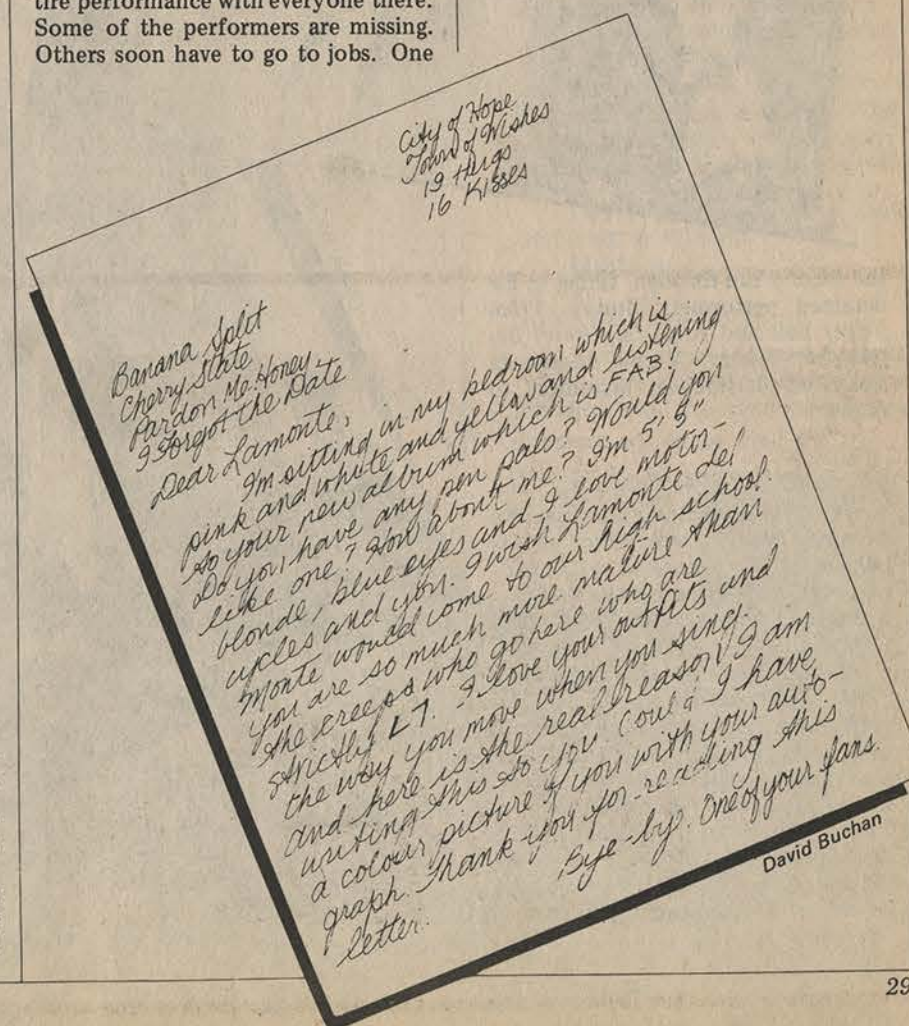 tire performance with everyone there.
Some of the performers are missing.
Others soon have to go to jobs. One
City of Hope
Town of Wishes
19 Hugs
16 Kisses
Banana Split
Cherry State
Pardon Me Honey
I Forgot the Date
Dear Lamonte,
I'm sitting in my bedroom which is
pink and white and yellow and listening
to your new album which is FAB!
Do you have any pen pals? Would you
like one? How about me? I'm 5' 5"
blonde, blue eyes and I love motor-
cycles and you. I wish Lamonte del
Monte would come to our high school.
You are so much more mature than
the creeps who go here who are
strictly L7. I love your outfits and
the way you move when you sing.
and here is the real reason I am
writing this to you. Could I have
a colour picture of you with your auto-
graph. Thank-you for reading this
letter.
Bye-by. One of your fans.
David Buchan
29